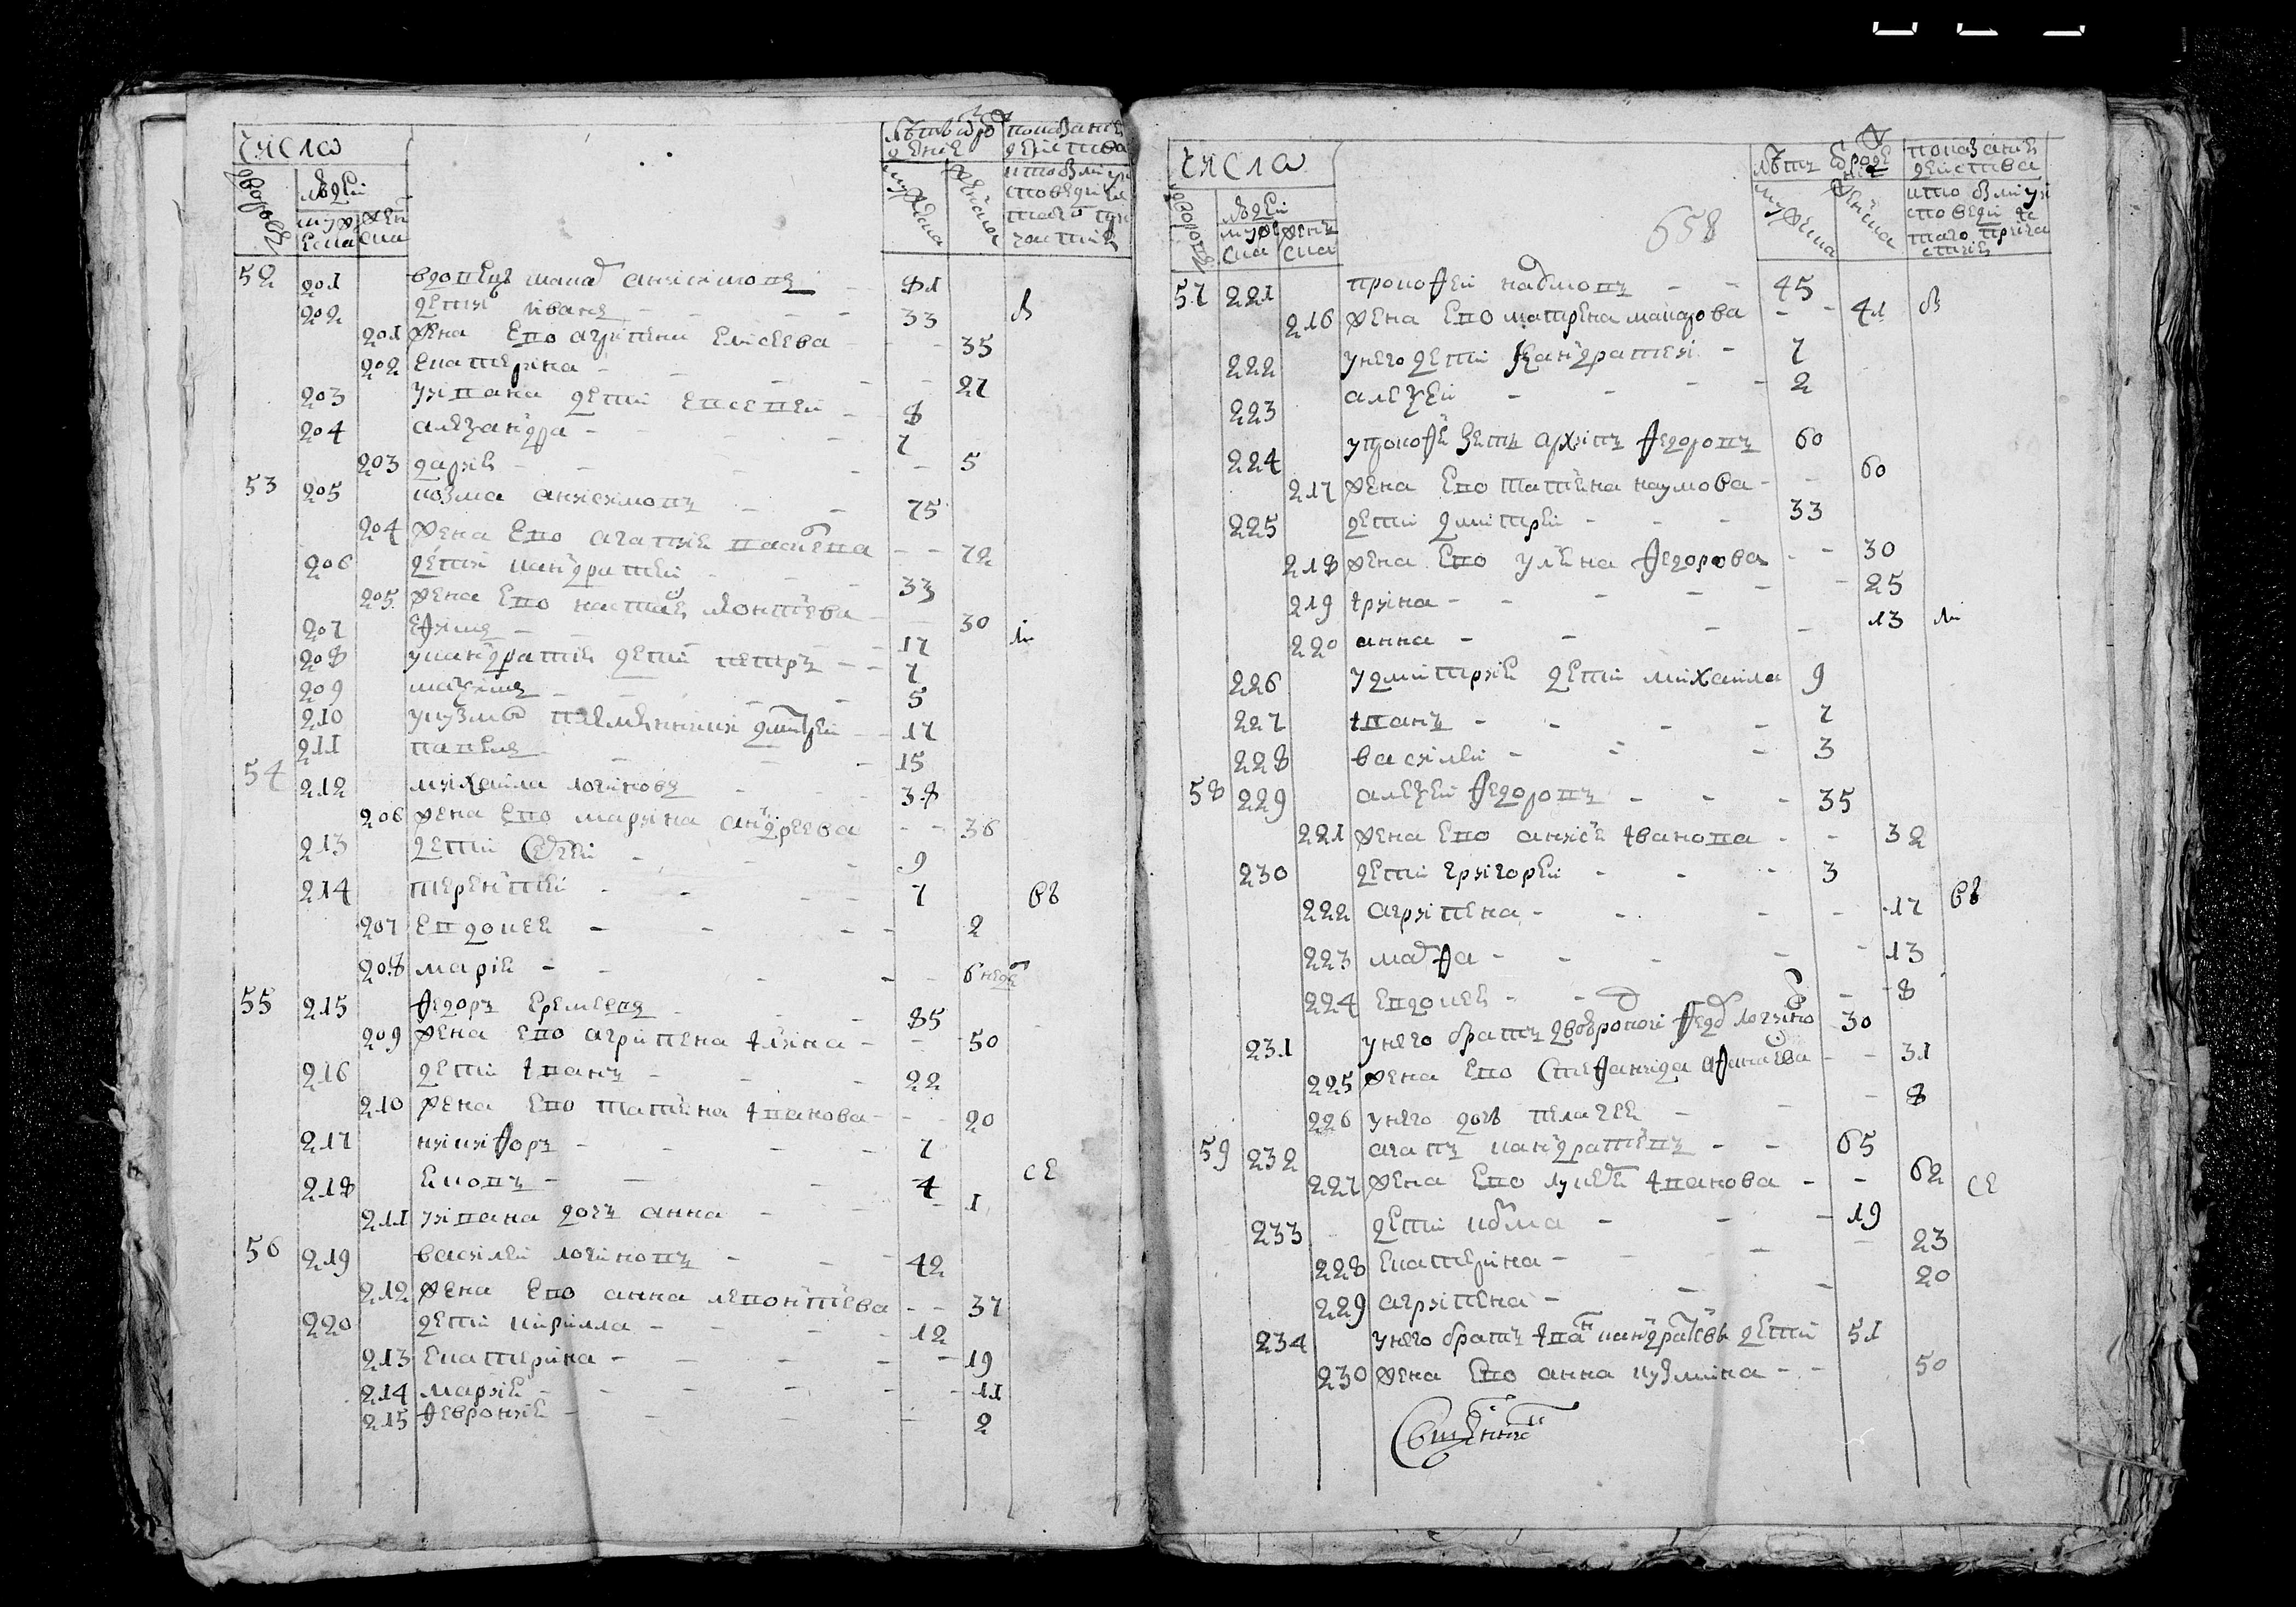 числа
дворовъ
людей
лѣтъ от рожденіе
показаніе действа
52 201 вдовецъ мака анисимовъ 81
202 дети иванъ 33 в
201 жена ево агрипена елисеева 35
202 екатерина 27
203 уивана дети евсевей 8
204 алеѯандра 7
203 дария 5
53 205 козма анисимовъ 75
204 жена ево агапия 72
206 дети кандратей 33
205 жена ево настасия леонтьева 30
207 ефимъ 17 ли
208 укандратия дети петръ 7
209 маѯимъ 5
210 укузмы племянники дмитрей 17
211 павелъ 15
54 212 михаила логиновъ 38
206 жена ево марина андреева 36
213 дети 9
214 терентей 7 ев
207 евдокея 2
208 мария 6 неде
55 215 федоръ еремеевъ 85
209 жена ево агрипена илина 50
216 дети иванъ 22
210 жена ево татияна иванова 20
217 никифоръ 7
218 яковъ 4 се
211 уивана дочь анна 1
56 219 василей логиновъ 42
212 жена ево анна левонтиева 37
220 дети кирилла 12
213 екатерина 19
214 мария 11
215 феврония 2
числа
658
дворовъ
людей
лѣтъ от рожденіе
показаніе действа
57 221 прокофей наумовъ 45
216 жена ево матрена макарова 41 в
222 унего дети кандратей 7
223 алеѯей 2
224 упрокофия зеть архипъ федоровъ 60
217 жена ево татияна наумова 60
225 дети дмитрей 33
218 жена ево улияна федорова 30
219 ирина 25
220 анна 13 ли
226 удмитрия дети михаила 9
227 иванъ 7
228 василей 3
58 229 алеѯей федоровъ 35
221 жена ево анисия иванова 32
230 дети григорей 3
222 агрипена 17 ев
223 марфа 13
224 евдокея 8
231 унего братъ двоюродной федоръ логинов 30
225 жена ево стефанида афанасева 31
226 унего дочь пелагея 8
59 232 агапъ кандратиевъ 65
227 жена ево лукерия иванова 62 се
233 дети козма 19
228 екатерина 23
229 агрипена 20
234 унего братъ иван кандратьевъ дети 51
230 жена ево анна кузмина 50
священникъ